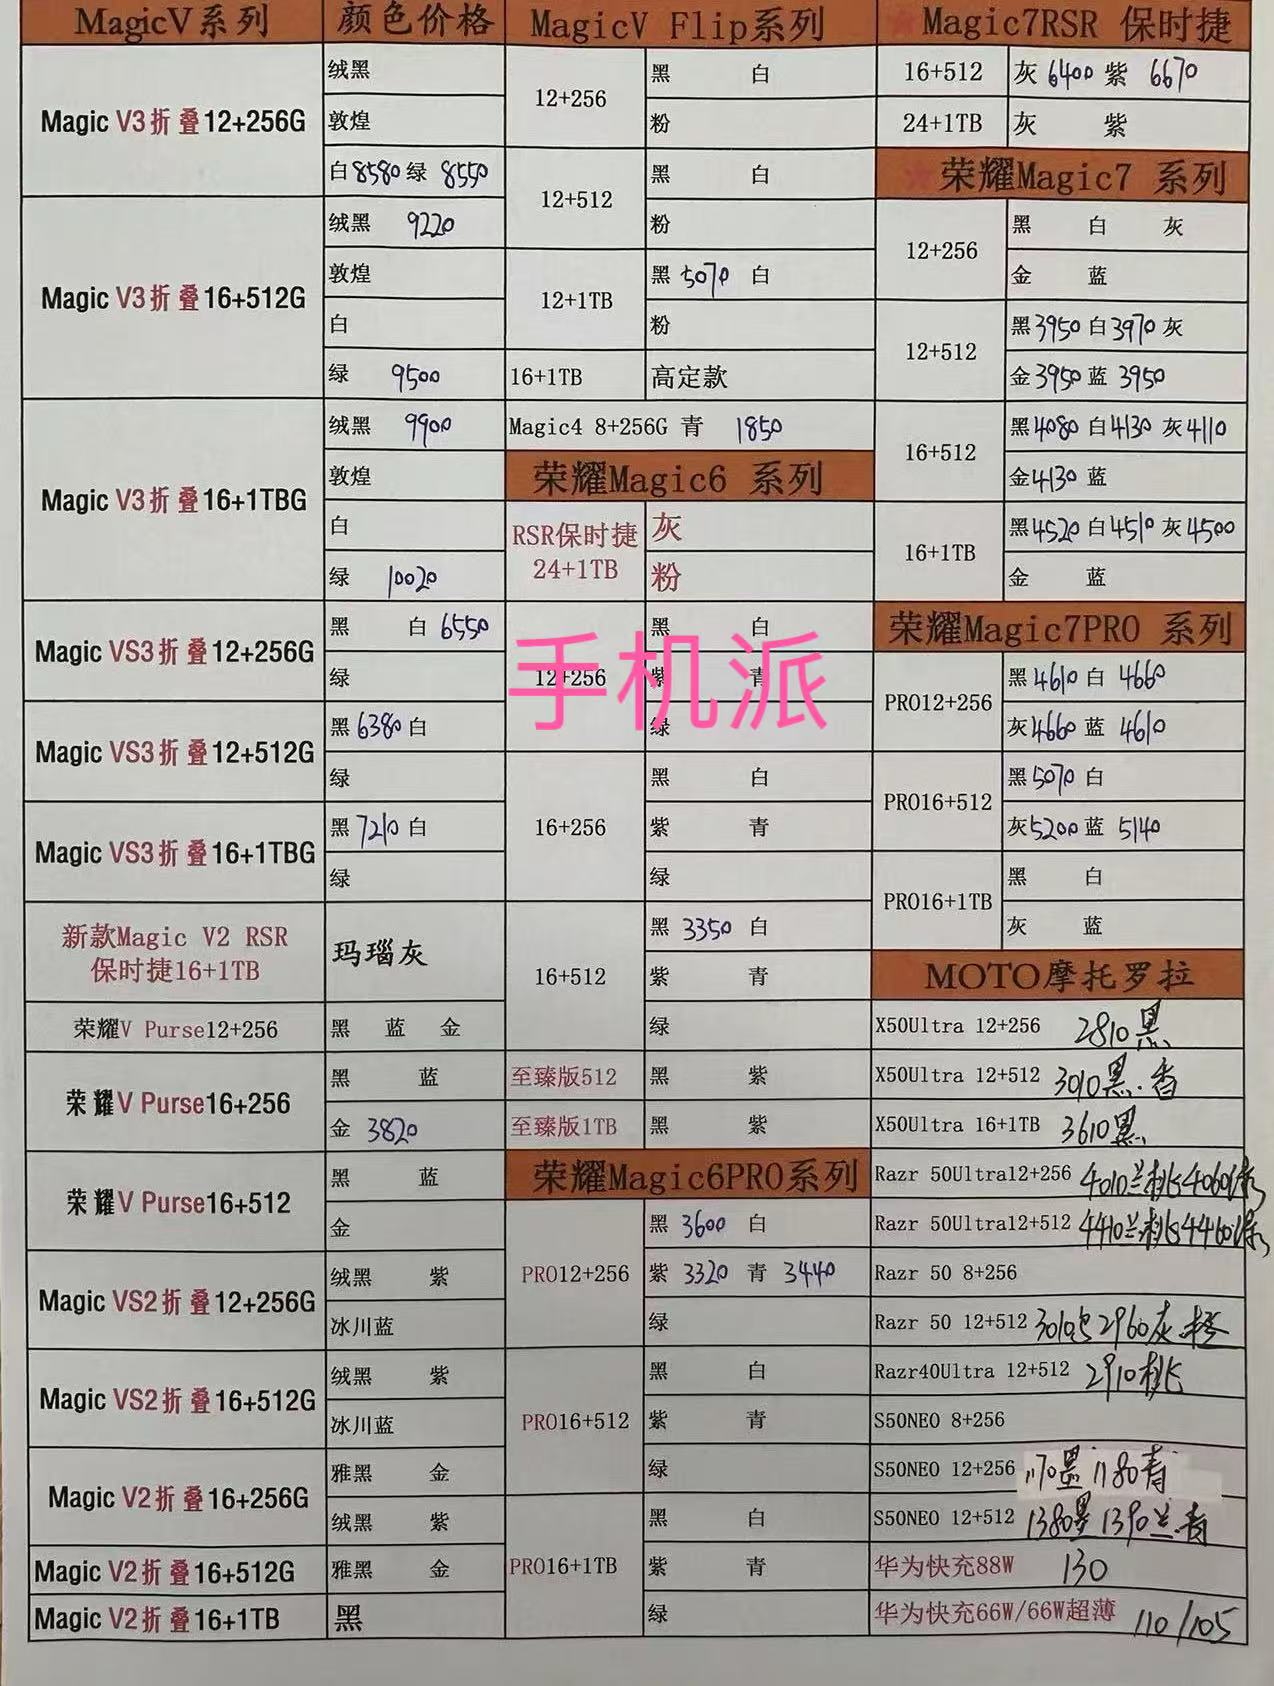 MagicV系列 颜色价格
Magic V3折叠12+256G
绒黑
敦煌
白8580 绿 8550
Magic V3折叠16+512G
绒黑 9220
敦煌
白
绿 9500
Magic V3折叠16+1TBG
绒黑 9900
敦煌
白
绿 10020
Magic VS3折叠12+256G
黑 白 6550
绿
Magic VS3折叠12+512G
黑 6380 白
绿
Magic VS3折叠16+1TBG
黑 7210 白
绿
新款Magic V2 RSR
保时捷16+1TB
玛瑙灰
荣耀V Purse12+256
黑 蓝 金
荣耀V Purse16+256
黑 蓝
金 3820
荣耀V Purse16+512
黑 蓝
金
Magic VS2折叠12+256G
绒黑 紫
冰川蓝
Magic VS2折叠16+512G
绒黑 紫
冰川蓝
Magic V2折叠16+256G
雅黑 金
绒黑 紫
Magic V2折叠16+512G
雅黑 金
Magic V2折叠16+1TB
黑
MagicV Flip系列
12+256
黑 白
粉
12+512
黑 白
粉
12+1TB
黑 5070 白
粉
16+1TB 高定款
Magic4 8+256G 青 1850
荣耀Magic6 系列
RSR保时捷
24+1TB
灰
粉
12+256
黑 白
紫 青
绿
16+256
黑 白
紫 青
绿
16+512
黑 3350 白
紫 青
绿
至臻版512 黑 紫
至臻版1TB 黑 紫
荣耀Magic6PRO系列
PRO12+256
黑 3600 白
紫 3320 青 3440
绿
PRO16+512
黑 白
紫 青
绿
PRO16+1TB
黑 白
紫 青
绿
Magic7RSR 保时捷
16+512 灰 6400 紫 6670
24+1TB 灰 紫
荣耀Magic7 系列
12+256
黑 白 灰
金 蓝
12+512
黑3950 白3970 灰
金3950 蓝 3950
16+512
黑4080 白4130 灰4110
金4130 蓝
16+1TB
黑4520 白4510 灰4500
金 蓝
荣耀Magic7PRO 系列
PRO12+256
黑4610 白 4660
灰4660 蓝 4610
PRO16+512
黑5070 白
灰5200 蓝 5140
PRO16+1TB
黑 白
灰 蓝
MOTO摩托罗拉
X50Ultra 12+256 2810黑
X50Ultra 12+512 3010黑.香
X50Ultra 16+1TB 3610黑
Razr 50Ultra12+256 4010兰桃4060绿
Razr 50Ultra12+512 4410兰桃4460绿
Razr 50 8+256
Razr 50 12+512 3010 2960灰.橙
Razr40Ultra 12+512 2910桃
S50NEO 8+256
S50NEO 12+256 1170墨 1180青
S50NEO 12+512 1380墨 1390兰.青
华为快充88W 130
华为快充66W/66W超薄 110/105
手机派